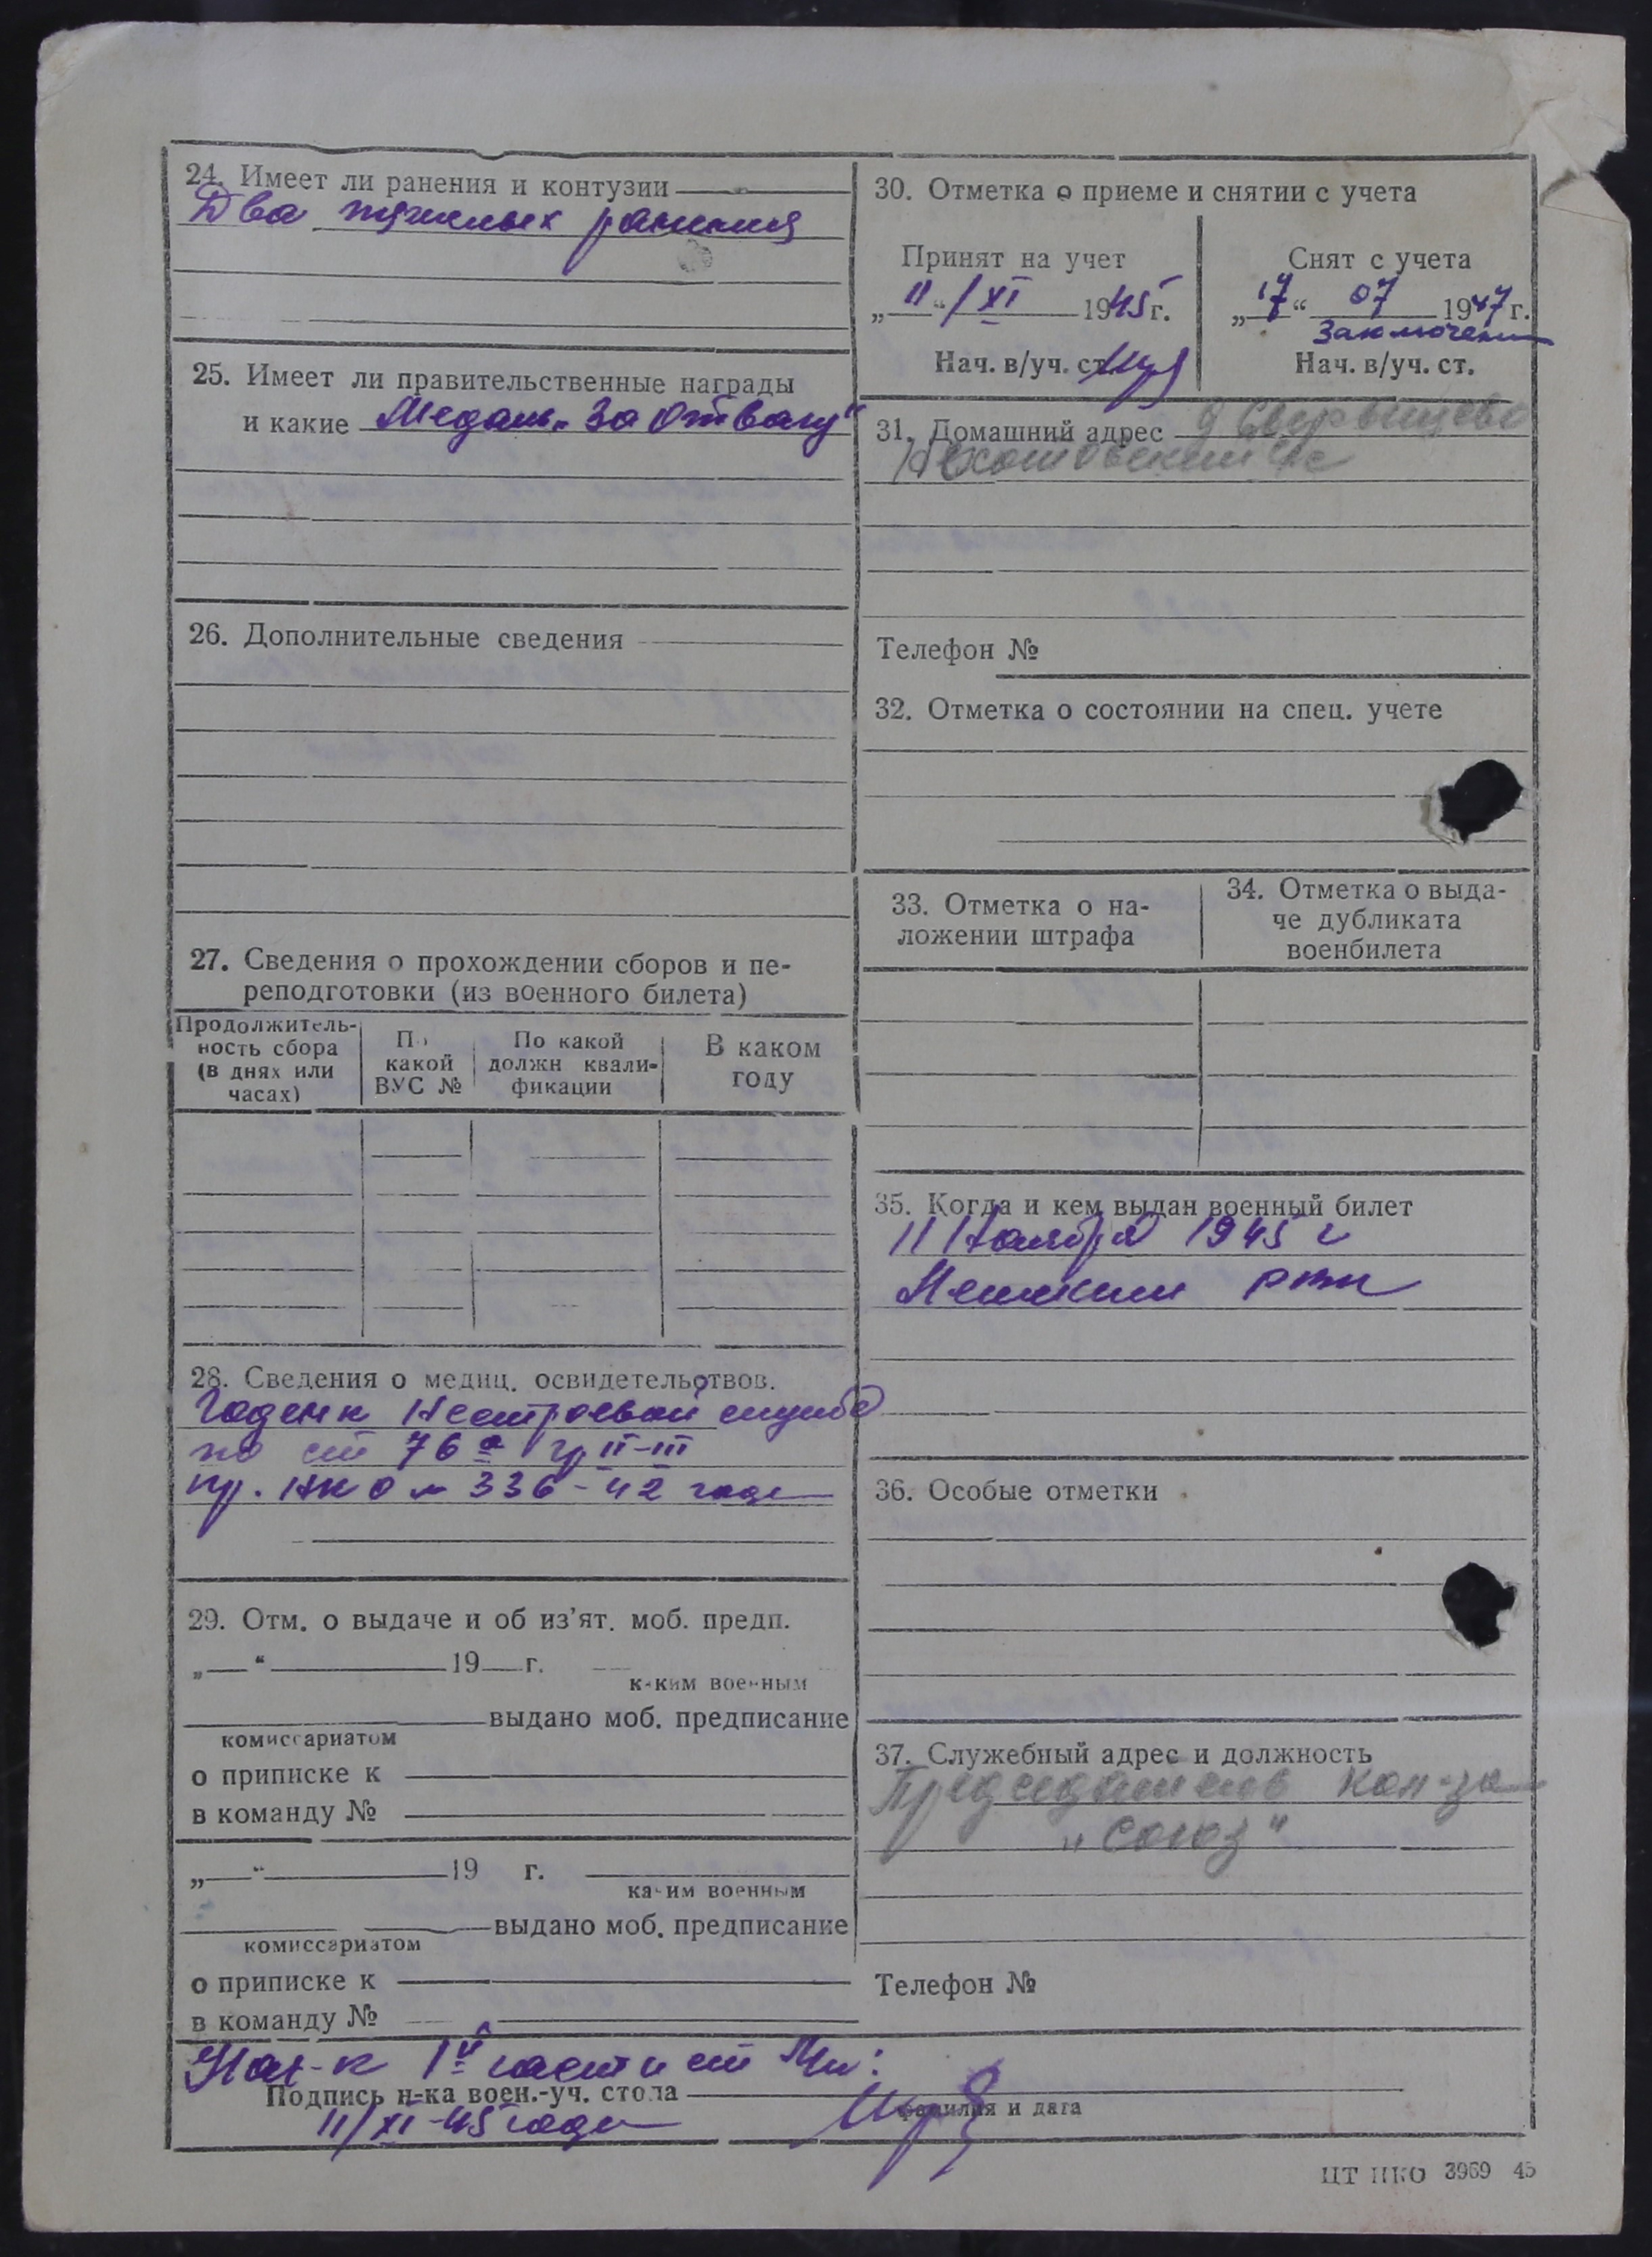 24. Имеет ли ранения и контузии
Два тяжелых ранения
25. Имеет ли правительственные награды
и какие Медаль „За Отвагу“
26. Дополнительные сведения
27. Сведения о прохождении сборов и пе-
реподготовки (из военного билета)
Продолжитель-
ность сбора
(в днях или
часах)
По
какой
ВУС №
По какой
должн квали-
фикации
В каком
году
28. Сведения о медиц. освидетельствов.
Годен к Нестроевой службе
по ст 76а гр II-III
пр. НКО № 336-42 года
29. Отм. о выдаче и об из’ят. моб. предп.
„ “ 19 г.
каким военным
выдано моб. предписание
комиссариатом
о приписке к
в команду №
„ “ 19 г.
каким военным
выдано моб. предписание
комиссариатом
о приписке к
в команду №
30. Отметка о приеме и снятии с учета
Принят на учет
„11“ / XI 1945 г.
Нач. в/уч. ст.
Снят с учета
„17“ 07 1947 г.
Заключен
Нач. в/уч. ст.
31. Домашний адрес д
с/с
Телефон №
32. Отметка о состоянии на спец. учете
33. Отметка о на-
ложении штрафа
34. Отметка о выда-
че дубликата
военбилета
35. Когда и кем выдан военный билет
11 Ноября 1945 г
36. Особые отметки
37. Служебный адрес и должность
Председатель кол-за
„Союз“
Телефон №
Нач-к 1й части ст
Подпись н-ка воен.-уч. стола
фамилия и дата
11/XI-45 года
ЦТ НКО 3969 45